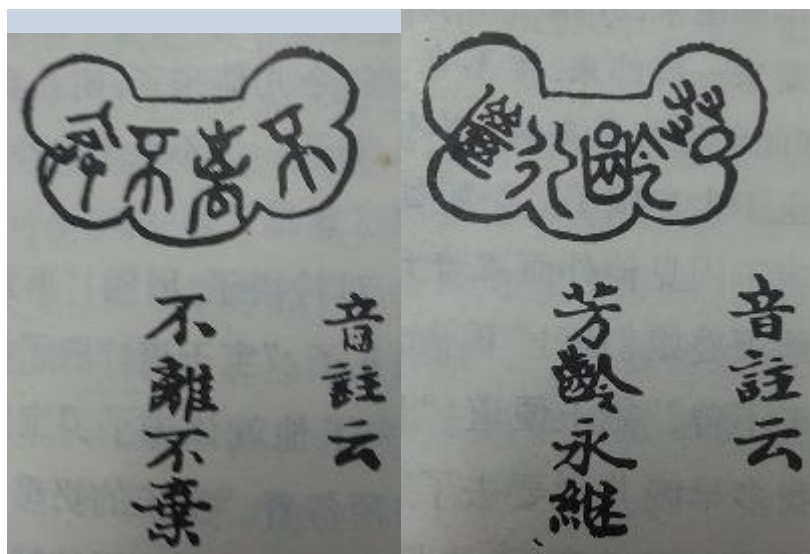 不離不棄
音註云
不離不棄
芳齡永繼
音註云
芳齡永繼